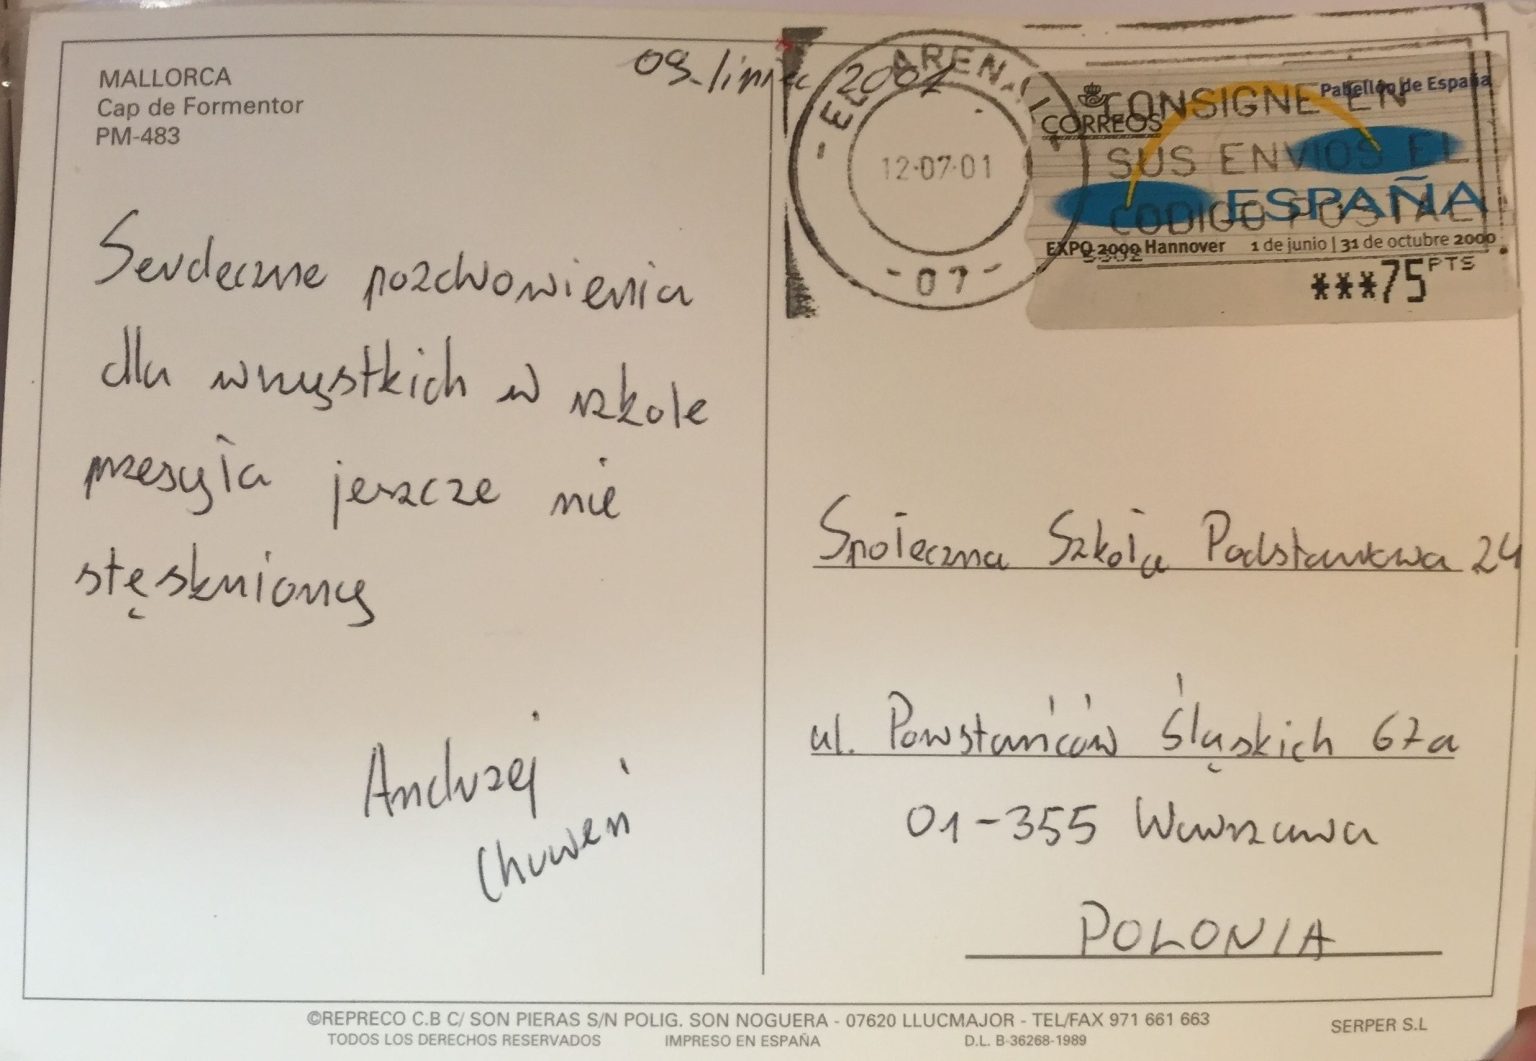 MALLORCA
Cap de Formentor
PM-483
09 lipiec 2001
Serdeczne pozdrowienia
dla wszystkich w szkole
przesyła jeszcze nie
stęskniony
Andrzej
EL ARENAL
12·07·01
- 07 -
CONSIGNE EN
SUS ENVIOS EL
CODIGO POSTAL
CORREOS
Pabellón de España
ESPAÑA
EXPO 2000 Hannover 1 de junio | 31 de octubre 2000
***75 PTS
Społeczna Szkoła Podstawowa 24
ul. Powstańców Śląskich 67a
01-355 Warszawa
POLONIA
©REPRECO C.B C/ SON PIERAS S/N POLIG. SON NOGUERA - 07620 LLUCMAJOR - TEL/FAX 971 661 663
TODOS LOS DERECHOS RESERVADOS IMPRESO EN ESPAÑA D.L. B-36268-1989
SERPER S.L